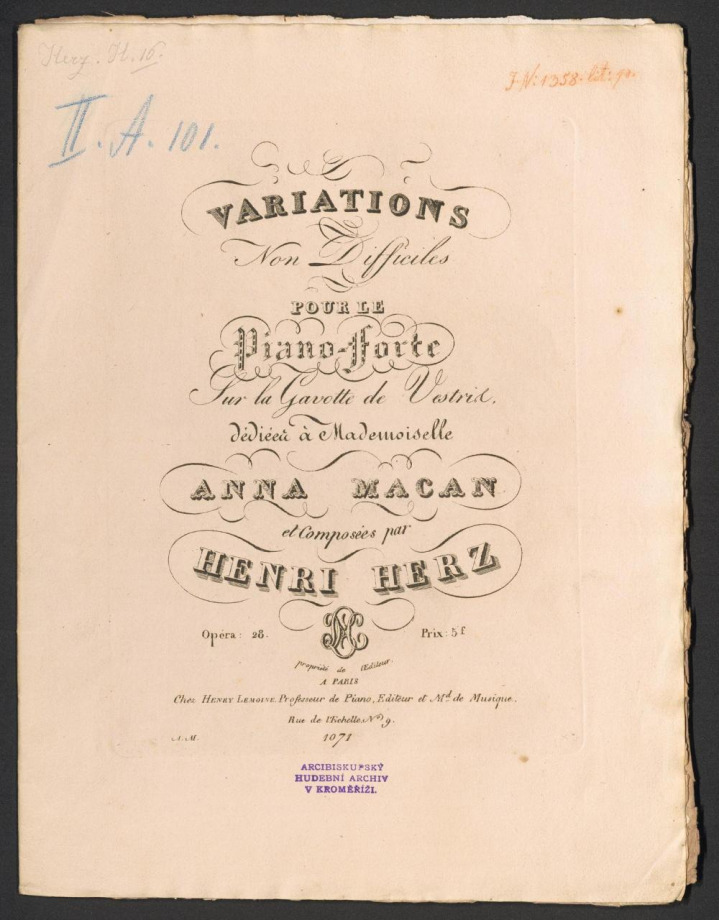 Herz. H. 16.
J. N: 1358. lit: p.
II. A. 101.
VARIATIONS
Non Difficiles
POUR LE
Piano-Forte
Sur la Gavotte de Vestris,
dédiées à Mademoiselle
ANNA MACAN
et Composées par
HENRI HERZ
Opéra: 28. Prix: 5f
Propriété de l'Editeur.
A PARIS
Chez HENRY LEMOINE, Professeur de Piano, Editeur et Md. de Musique,
Rue de l'Echelle, No. 9.
1071
ARCIBISKUPSKÝ
HUDEBNÍ ARCHIV
V KROMĚŘÍŽI.